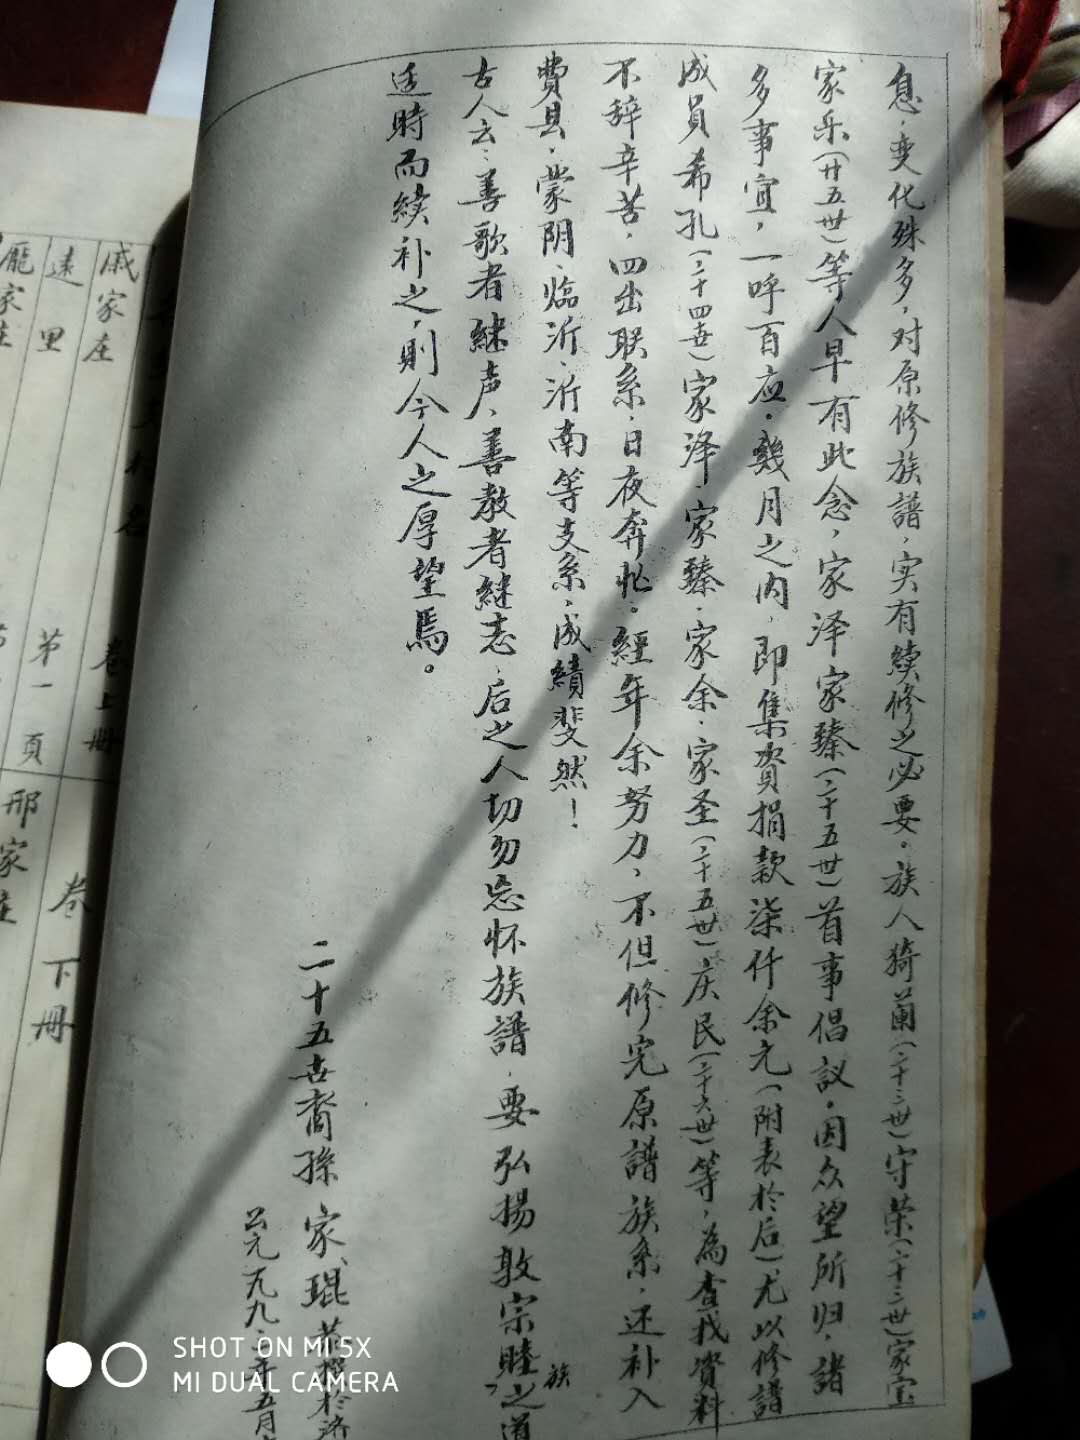 息，变化殊多，对原修族譜，实有續修之必要。族人猗蘭（二十三世）守荣（二十三世）家宝
家乐（廿五世）等人早有此念，家泽家臻（二十五世）首事倡议。因众望所归，諸
多事宜，一呼百应。幾月之内，即集資捐款柒仟余元（附表於后）尤以修譜
成員希孔（二十四世）家泽、家臻、家余、家圣（二十五世）庆民（二十六世）等，為查找資料
不辞辛苦，四出联系，日夜奔忙。經年余努力，不但修完原譜族系，还补入
費县、蒙阴、临沂、沂南等支系，成績斐然！
古人云：善歌者継声，善教者継志，后之人切勿忘怀族譜，要弘揚敦宗睦族之道
适時而續补之，則今人之厚望焉。
二十五世裔孫 家琨
公元一九九 年五月
戚家庄 卷上册
遠里 第一頁 卷下册
龐家庄 邢家庄
SHOT ON MI 5X
MI DUAL CAMERA